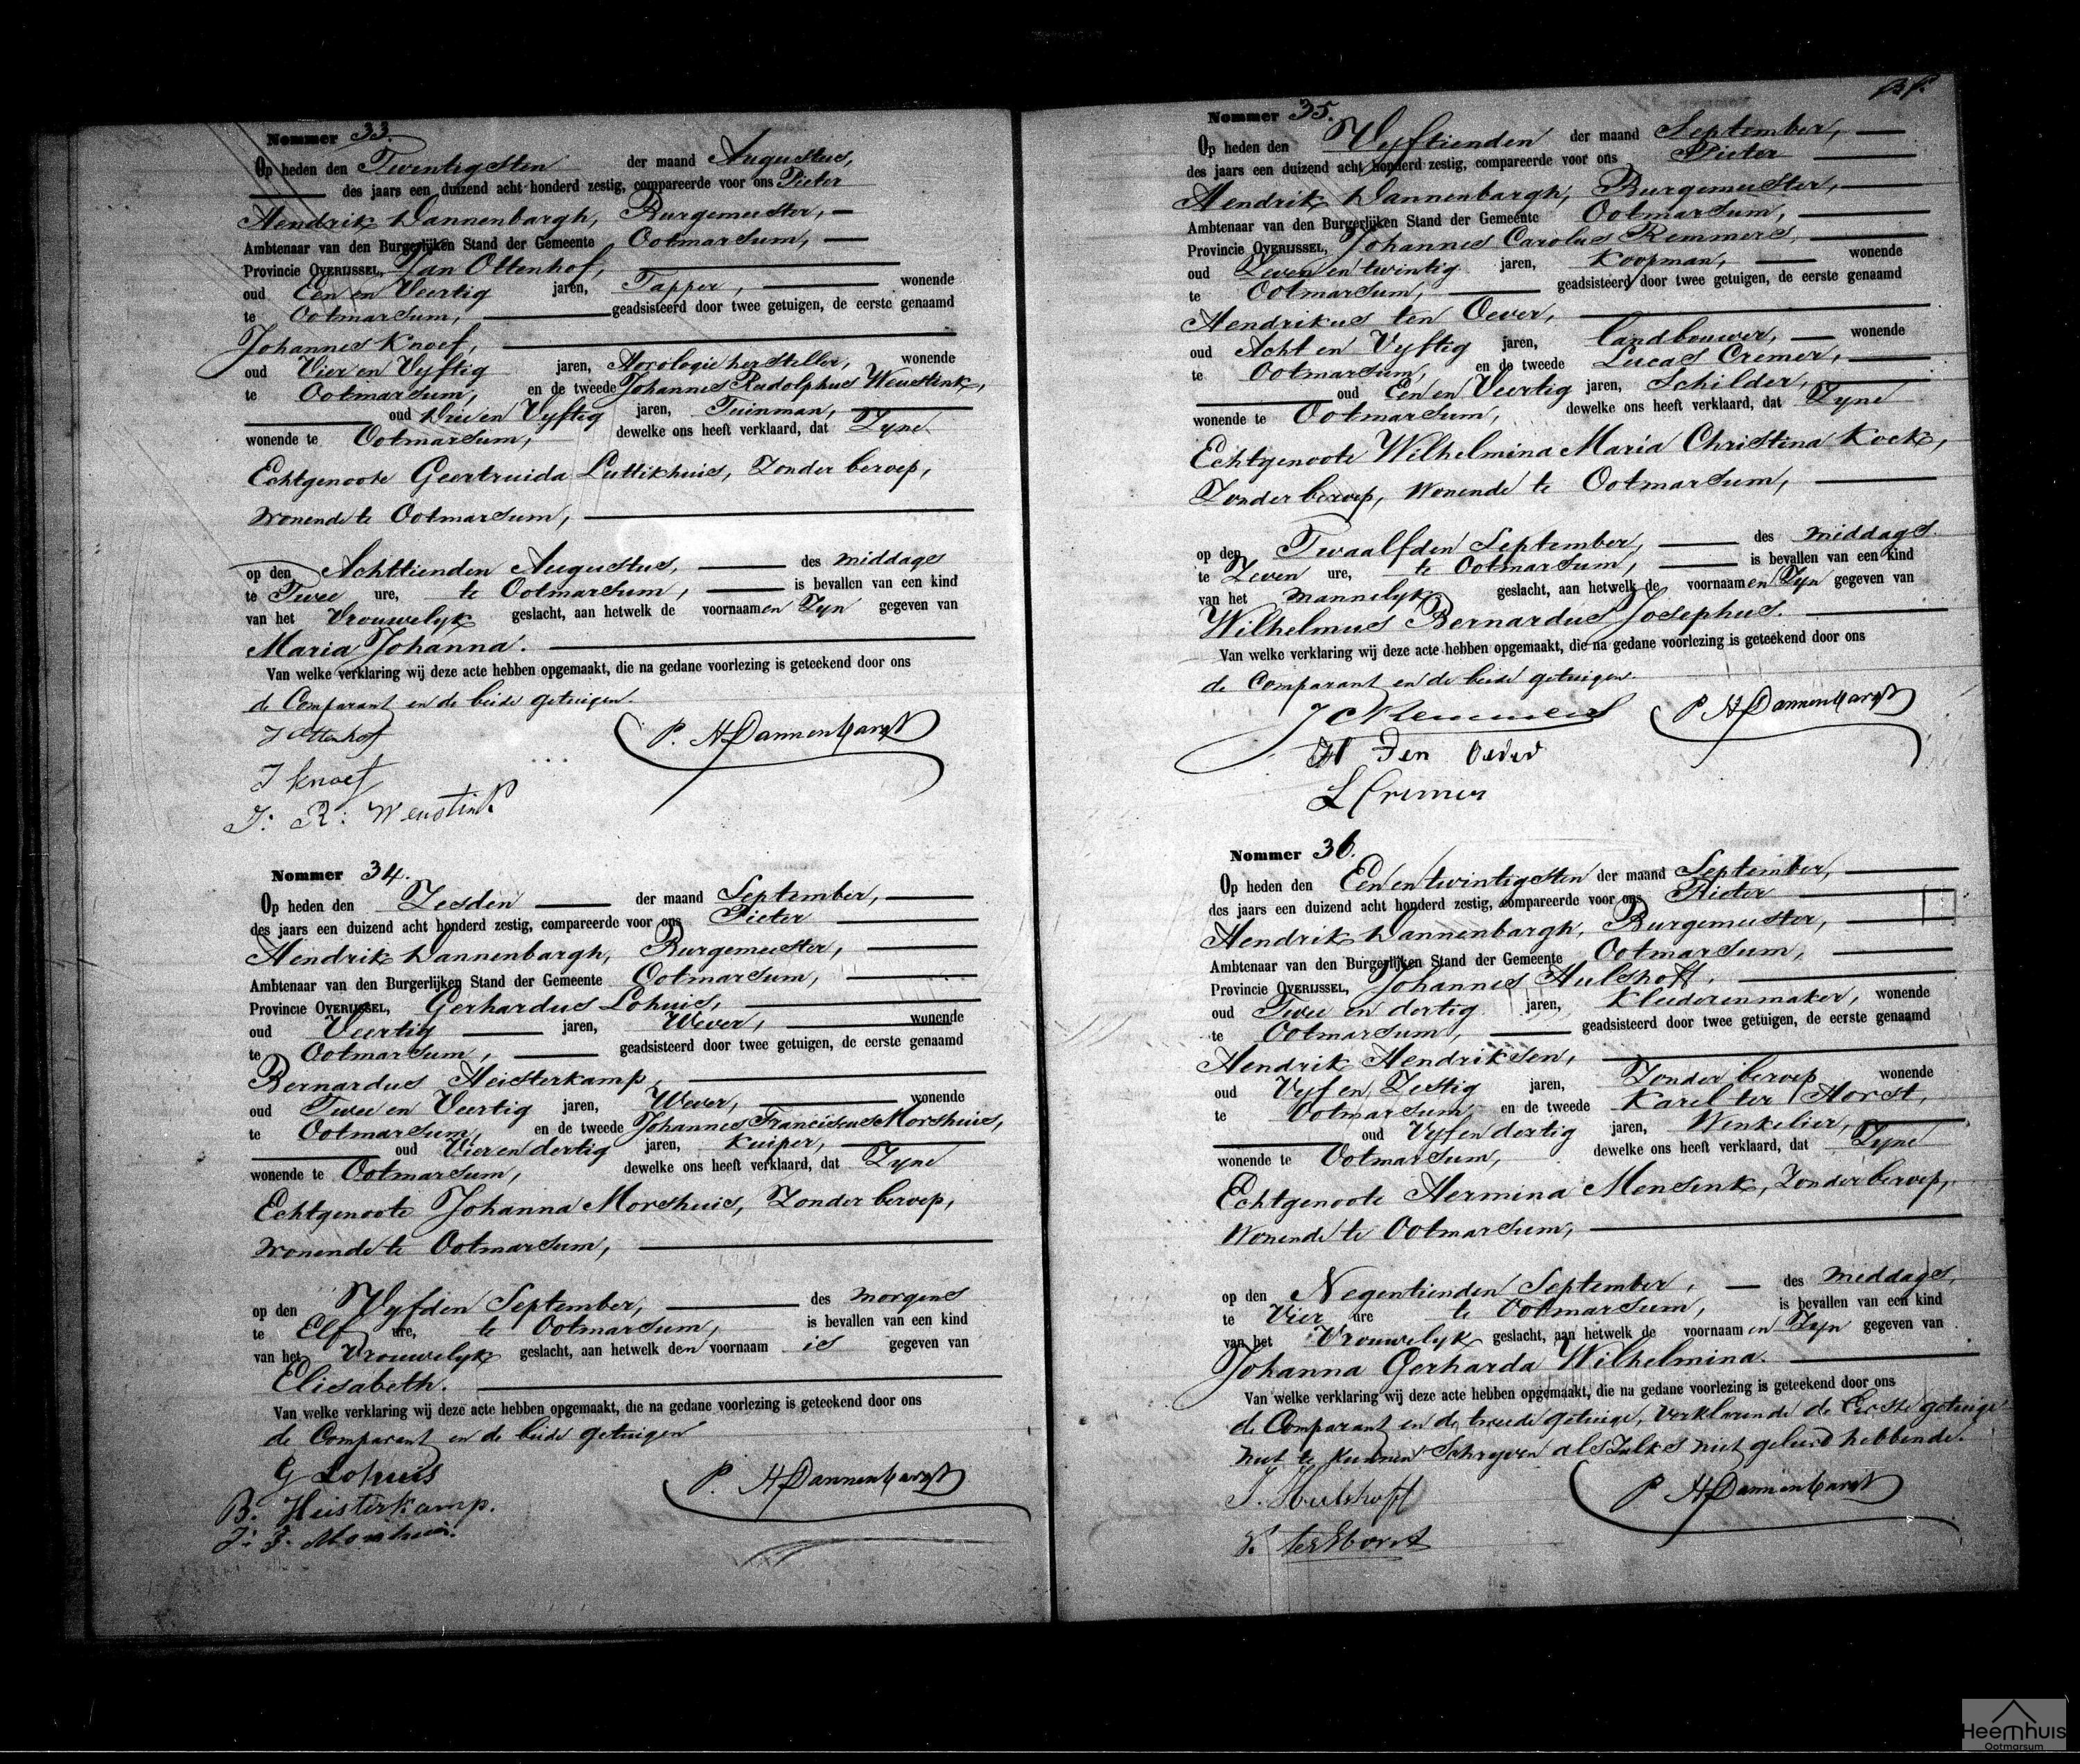 Nommer 33.
Op heden den Twintigsten der maand Augustus,
des jaars een duizend acht honderd zestig, compareerde voor ons Pieter
Hendrik Dannenbargh, Burgemeester,
Ambtenaar van den Burgerlijken Stand der Gemeente Ootmarsum,
Provincie OVERIJSSEL, Jan Ottenhof,
oud Een en Veertig jaren, Tapper, wonende
te Ootmarsum, geadsisteerd door twee getuigen, de eerste genaamd
Johannes Knoef,
oud Vier en Vyftig jaren, Horologie hersteller, wonende
te Ootmarsum, en de tweede Johannes Rudolphus Weustink,
oud Drie en Vyftig jaren, Tuinman,
wonende te Ootmarsum, dewelke ons heeft verklaard, dat Zyne
Echtgenoote Geertruida Luttikhuis, Zonder beroep,
Wonende te Ootmarsum,
op den Achttienden Augustus, des middags
te Twee ure, te Ootmarsum, is bevallen van een kind
van het Vrouwelyk geslacht, aan hetwelk de voornaamen Zyn gegeven van
Maria Johanna.
Van welke verklaring wij deze acte hebben opgemaakt, die na gedane voorlezing is geteekend door ons
de Comparant en de beide getuigen.
J Ottenhof
P. H Dannenbargh
J Knoef
J: R: Weustink
Nommer 34.
Op heden den Zesden der maand September,
des jaars een duizend acht honderd zestig, compareerde voor ons Pieter
Hendrik Dannenbargh, Burgemeester,
Ambtenaar van den Burgerlijken Stand der Gemeente Ootmarsum,
Provincie OVERIJSSEL, Gerhardus Lohuis,
oud Veertig jaren, Wever, wonende
te Ootmarsum, geadsisteerd door twee getuigen, de eerste genaamd
Bernardus Heisterkamp,
oud Twee en Veertig jaren, Wever, wonende
te Ootmarsum, en de tweede Johannes Franciscus Morshuis,
oud Vier en dertig jaren, Kuiper,
wonende te Ootmarsum, dewelke ons heeft verklaard, dat Zyne
Echtgenoote Johanna Morshuis, Zonder beroep,
Wonende te Ootmarsum,
op den Vyfden September, des morgens
te Elf ure, te Ootmarsum, is bevallen van een kind
van het Vrouwelyk geslacht, aan hetwelk den voornaam is gegeven van
Elisabeth.
Van welke verklaring wij deze acte hebben opgemaakt, die na gedane voorlezing is geteekend door ons
de Comparant en de beide getuigen
G Lohuis
P. H Dannenbargh
B. Heisterkamp.
J: F. Morshuis.
Nommer 35.
Op heden den Vyftienden der maand September,
des jaars een duizend acht honderd zestig, compareerde voor ons Pieter
Hendrik Dannenbargh, Burgemeester,
Ambtenaar van den Burgerlijken Stand der Gemeente Ootmarsum,
Provincie OVERIJSSEL, Johannes Carolus Remmers,
oud Zeven en twintig jaren, Koopman, wonende
te Ootmarsum, geadsisteerd door twee getuigen, de eerste genaamd
Hendrikus ten Oever,
oud Acht en Vyftig jaren, landbouwer, wonende
te Ootmarsum, en de tweede Lucas Cremer,
oud Een en Veertig jaren, Schilder,
wonende te Ootmarsum, dewelke ons heeft verklaard, dat Zyne
Echtgenoote Wilhelmina Maria Christina Kock,
Zonder beroep, Wonende te Ootmarsum,
op den Twaalfden September, des middags
te Zeven ure, te Ootmarsum, is bevallen van een kind
van het Mannelyk geslacht, aan hetwelk de voornaamen Zyn gegeven van
Wilhelmus Bernardus Josephus.
Van welke verklaring wij deze acte hebben opgemaakt, die na gedane voorlezing is geteekend door ons
de Comparant en de beide getuigen.
J C Remmers
P H Dannenbargh
H Ten Oever
L Cremer
Nommer 36.
Op heden den Een en twintigsten der maand September,
des jaars een duizend acht honderd zestig, compareerde voor ons Pieter
Hendrik Dannenbargh, Burgemeester,
Ambtenaar van den Burgerlijken Stand der Gemeente Ootmarsum,
Provincie OVERIJSSEL, Johannes Hulshoff,
oud Twee en dertig jaren, Kleederenmaker, wonende
te Ootmarsum, geadsisteerd door twee getuigen, de eerste genaamd
Hendrik Hendriksen,
oud Vyf en Zestig jaren, Zonder beroep wonende
te Ootmarsum, en de tweede Karel ter Horst,
oud Vyf en dertig jaren, Winkelier,
wonende te Ootmarsum, dewelke ons heeft verklaard, dat Zyne
Echtgenoote Hermina Mensink, Zonder beroep,
Wonende te Ootmarsum,
op den Negentienden September, des middags
te Vier ure te Ootmarsum, is bevallen van een kind
van het Vrouwelyk geslacht, aan hetwelk de voornaamen Zyn gegeven van
Johanna Gerharda Wilhelmina.
Van welke verklaring wij deze acte hebben opgemaakt, die na gedane voorlezing is geteekend door ons
de Comparant en de tweede getuige, Verklarende de Eerste getuige
niet te kunnen Schryven als Zulks niet geleerd hebbende.
J. Hulshoff
P H Dannenbargh
K. ter Horst
Heemhuis
Ootmarsum